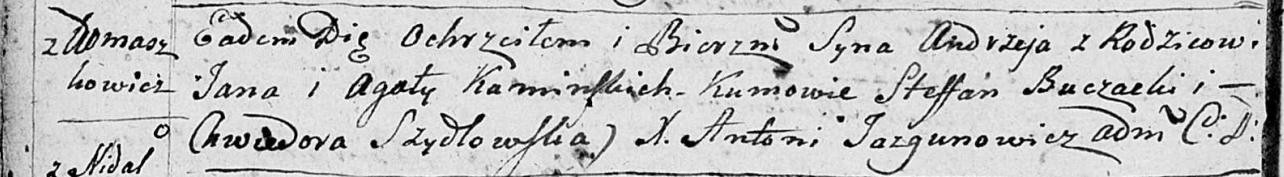 z Tomasz
kowicz
Eadem Die Ochrzciłem i Bierzm Syna Andrzeja z Rodzicow
Jana i Agaty Kaminskich. Kumowie Steffan Buczacki i —
Chwiedora Szydłowska) X. Antoni Jazgunowicz adm C: D:
z Nidal